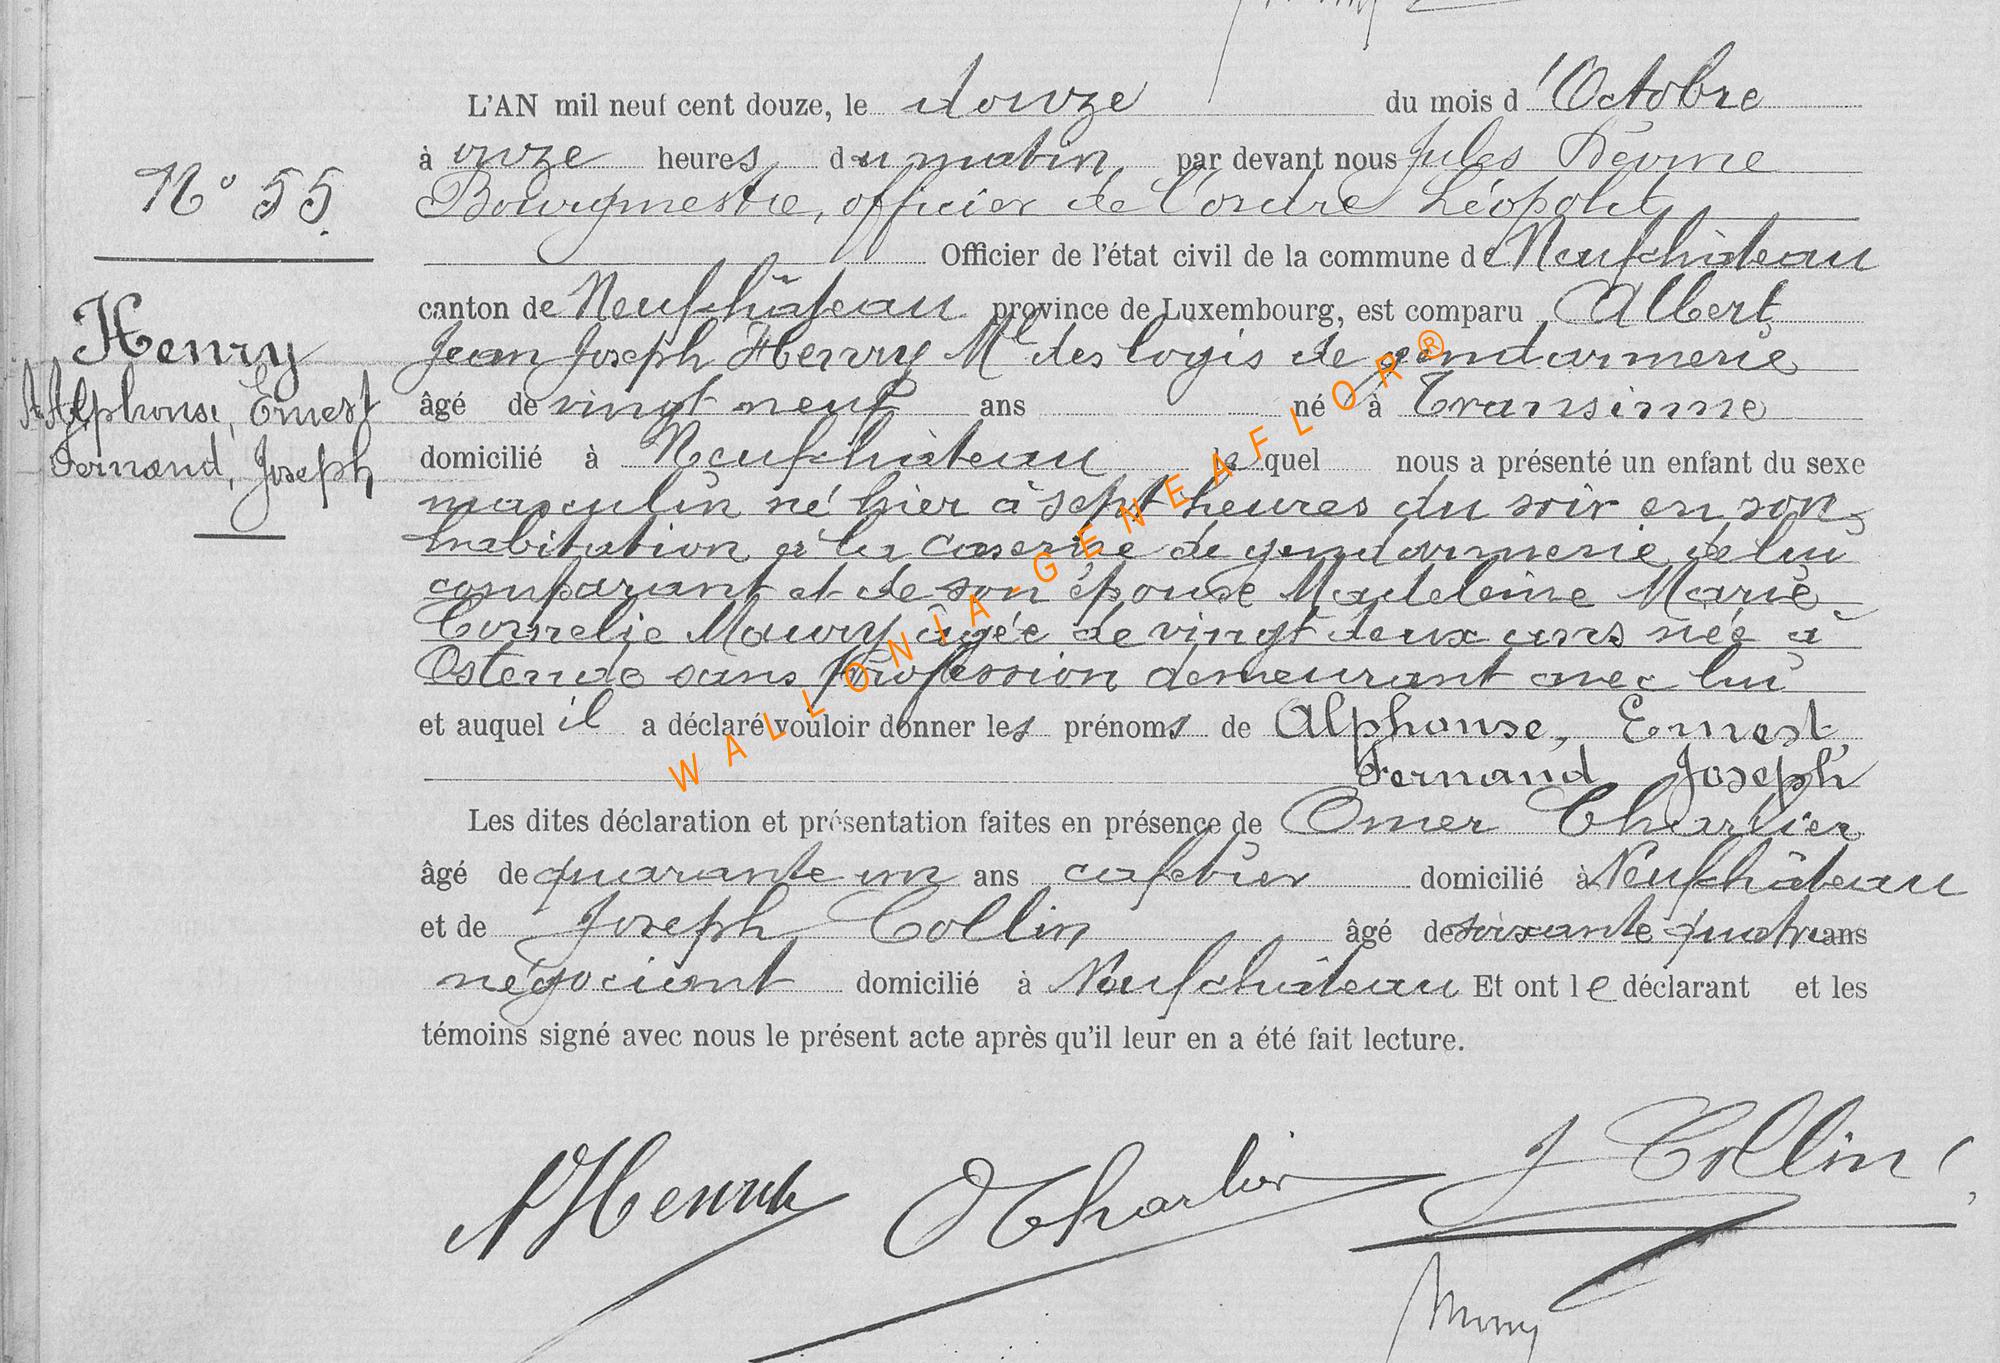 L'AN mil neuf cent douze, le douze du mois d'Octobre
à onze heures du matin, par devant nous Jules
Bourgmestre, officier de l'ordre Léopold
Officier de l'état civil de la commune de Neufchâteau
canton de Neufchâteau province de Luxembourg, est comparu Albert
Jean Joseph Henry Mal des logis de gendarmerie
âgé de vingt neuf ans né à Transinne
domicilié à Neufchâteau lequel nous a présenté un enfant du sexe
masculin né hier à sept heures du soir en son
habitation à la caserne de gendarmerie de lui
comparant et de son épouse Madeleine Marie
Cornelie Maury âgée de vingt deux ans née à
Ostende sans profession demeurant avec lui
et auquel il a déclaré vouloir donner les prénoms de Alphonse, Ernest,
Fernand Joseph
Les dites déclaration et présentation faites en présence de Omer Charlier
âgé de quarante un ans cafetier domicilié à Neufchâteau
et de Joseph Collin âgé de soixante quatre ans
négociant domicilié à Neufchâteau Et ont le déclarant et les
témoins signé avec nous le présent acte après qu'il leur en a été fait lecture.
N° 55.
Henry
Alphonse, Ernest
Fernand, Joseph
WALLONIA-GENEAFLOR®
A Henry
O Charlier
J Collin